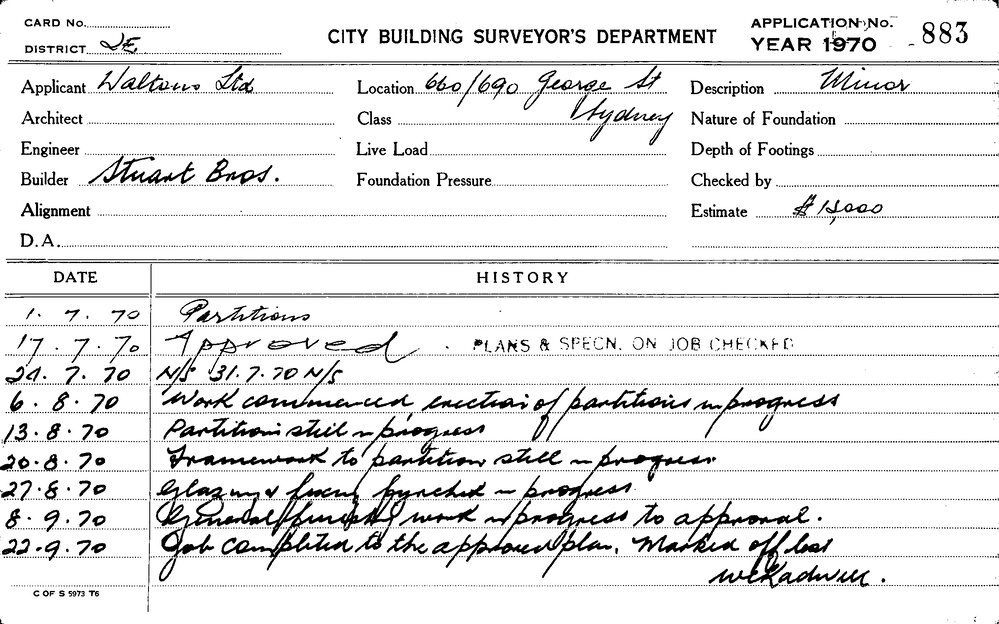 CARD No.
DISTRICT SE
CITY BUILDING SURVEYOR'S DEPARTMENT
APPLICATION No. 883
YEAR 1970
Applicant Waltons Ltd
Location 660/690 George St
Sydney
Description Minor
Architect
Class
Nature of Foundation
Engineer
Live Load
Depth of Footings
Builder Stuart Bros.
Foundation Pressure
Checked by
Alignment
Estimate
D.A.
DATE HISTORY
1. 7. 70 Partitions
17. 7. 70 Approved . PLANS & SPECN. ON JOB CHECKED
24. 7. 70 N/S 31.7.70 N/S
6. 8. 70 Work commenced, erection of partitions in progress
13. 8. 70 Partition still in progress
20. 8. 70 Framework to partition still in progress
27. 8. 70 Glazing & fixing in progress
8. 9. 70 General work in progress to approval.
22. 9. 70 Job completed to the approved plan. Marked off
C OF S 5973 T6